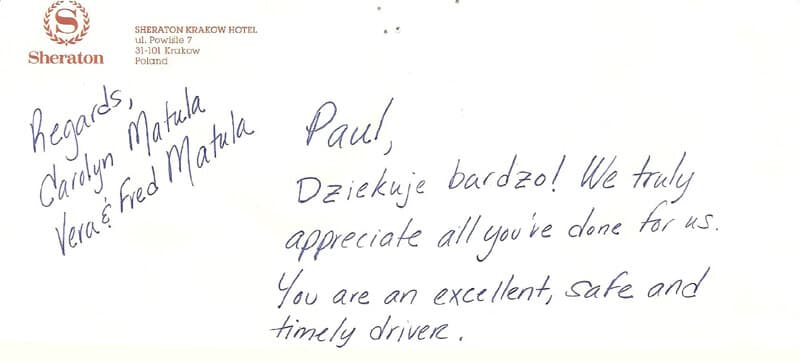 Sheraton
SHERATON KRAKOW HOTEL
ul. Powiśle 7
31-101 Krakow
Poland
Paul,
Dziekuje bardzo! We truly
appreciate all you've done for us.
You are an excellent, safe and
timely driver.
Regards,
Carolyn Matula
Vera & Fred Matula